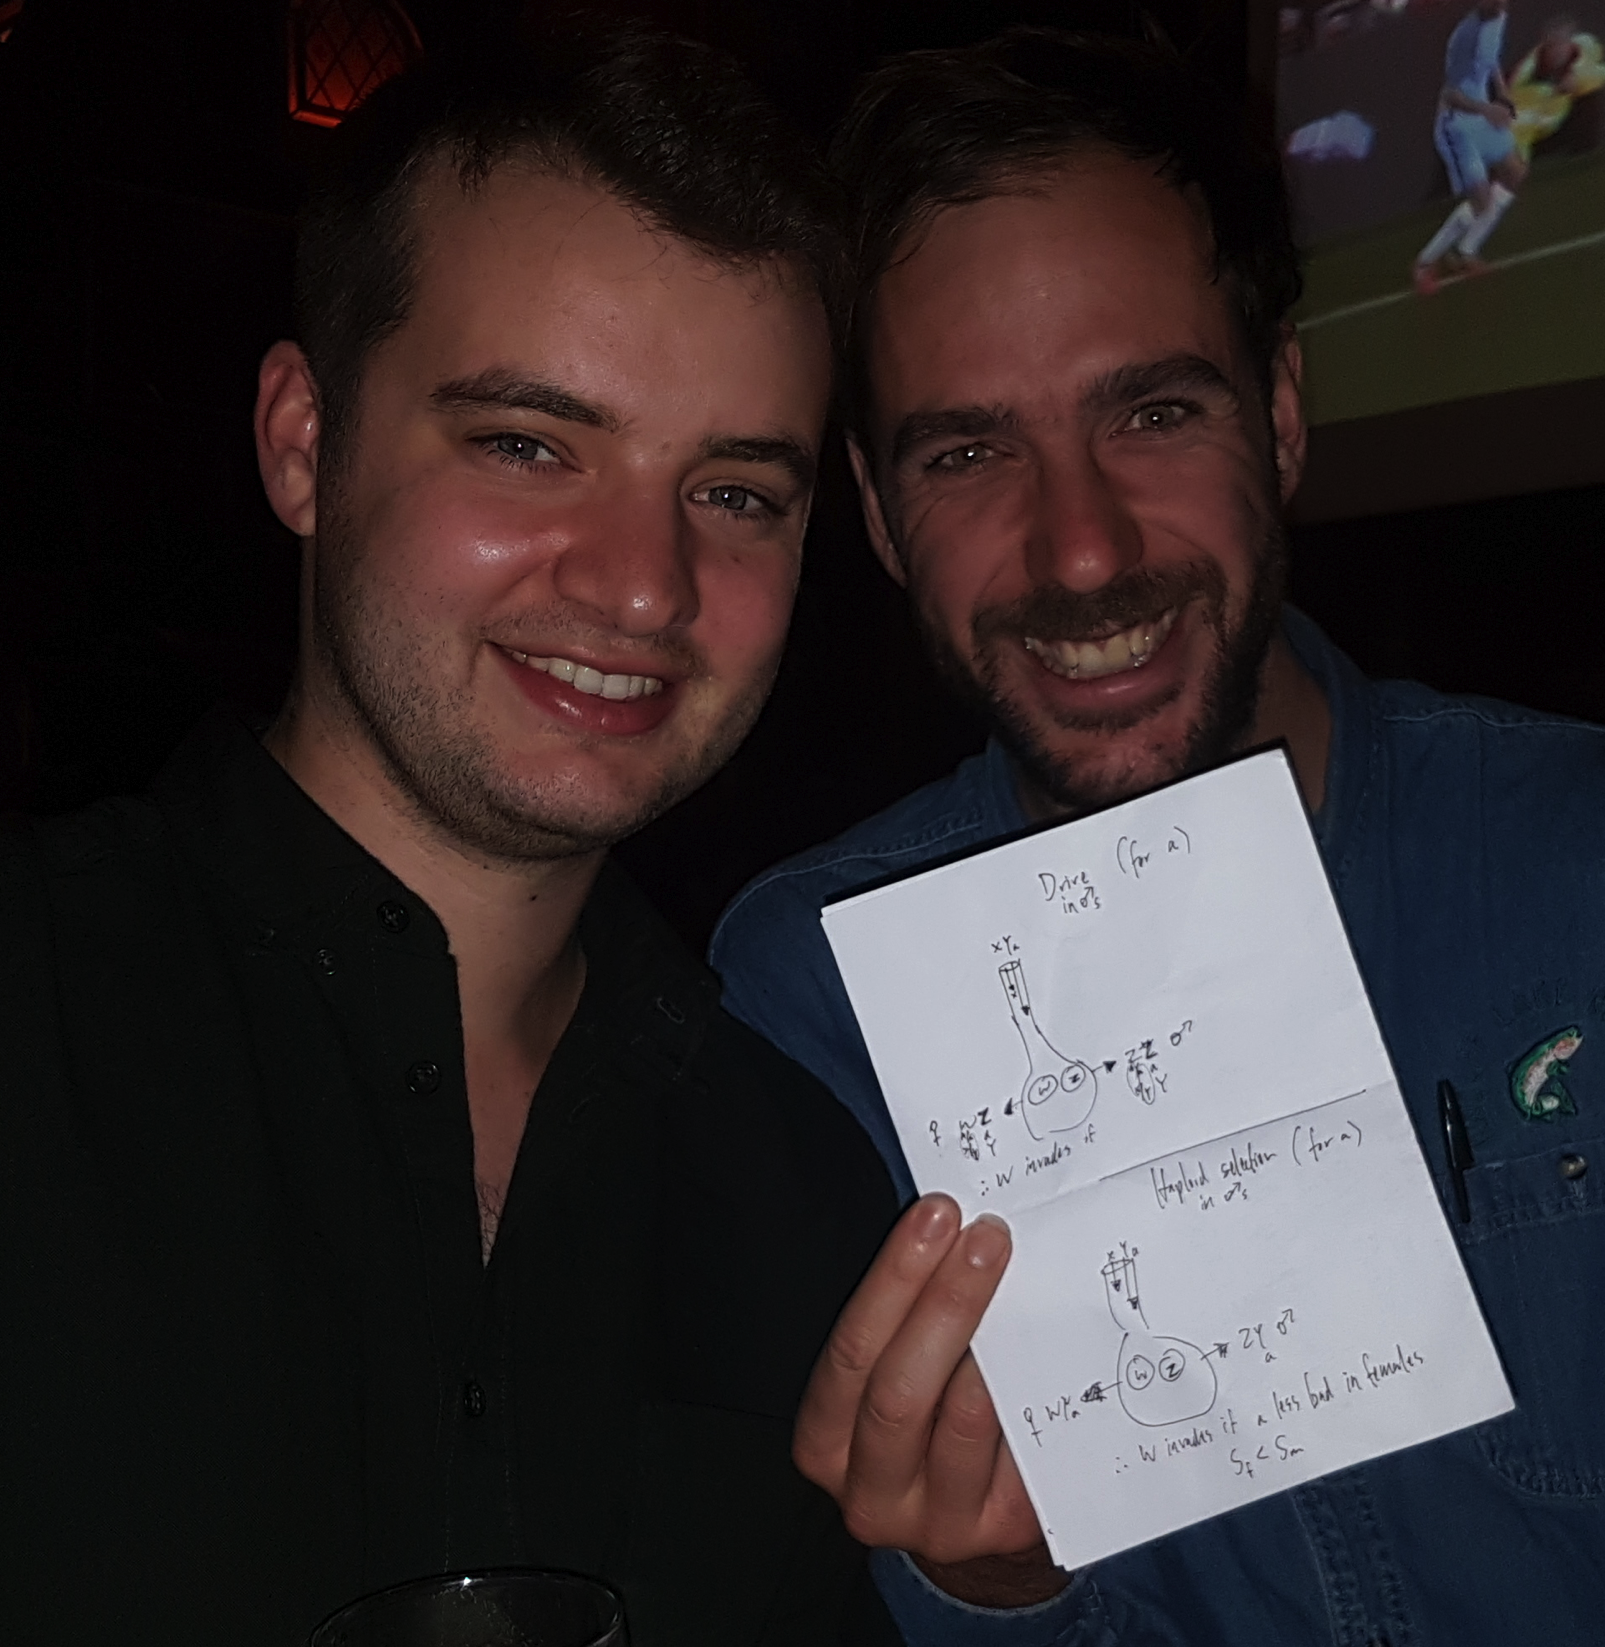 Drive (for a)
in ♂s
X Ya
x
W Z
ZZ ♂
a
Y
♀ WZ
a
Y
∴ W invades if
Haploid selection (for a)
in ♂s
X Ya
W Z
ZY ♂
a
♀ WYa
∴ W invades if a less bad in females
Sf < Sm
LAKE